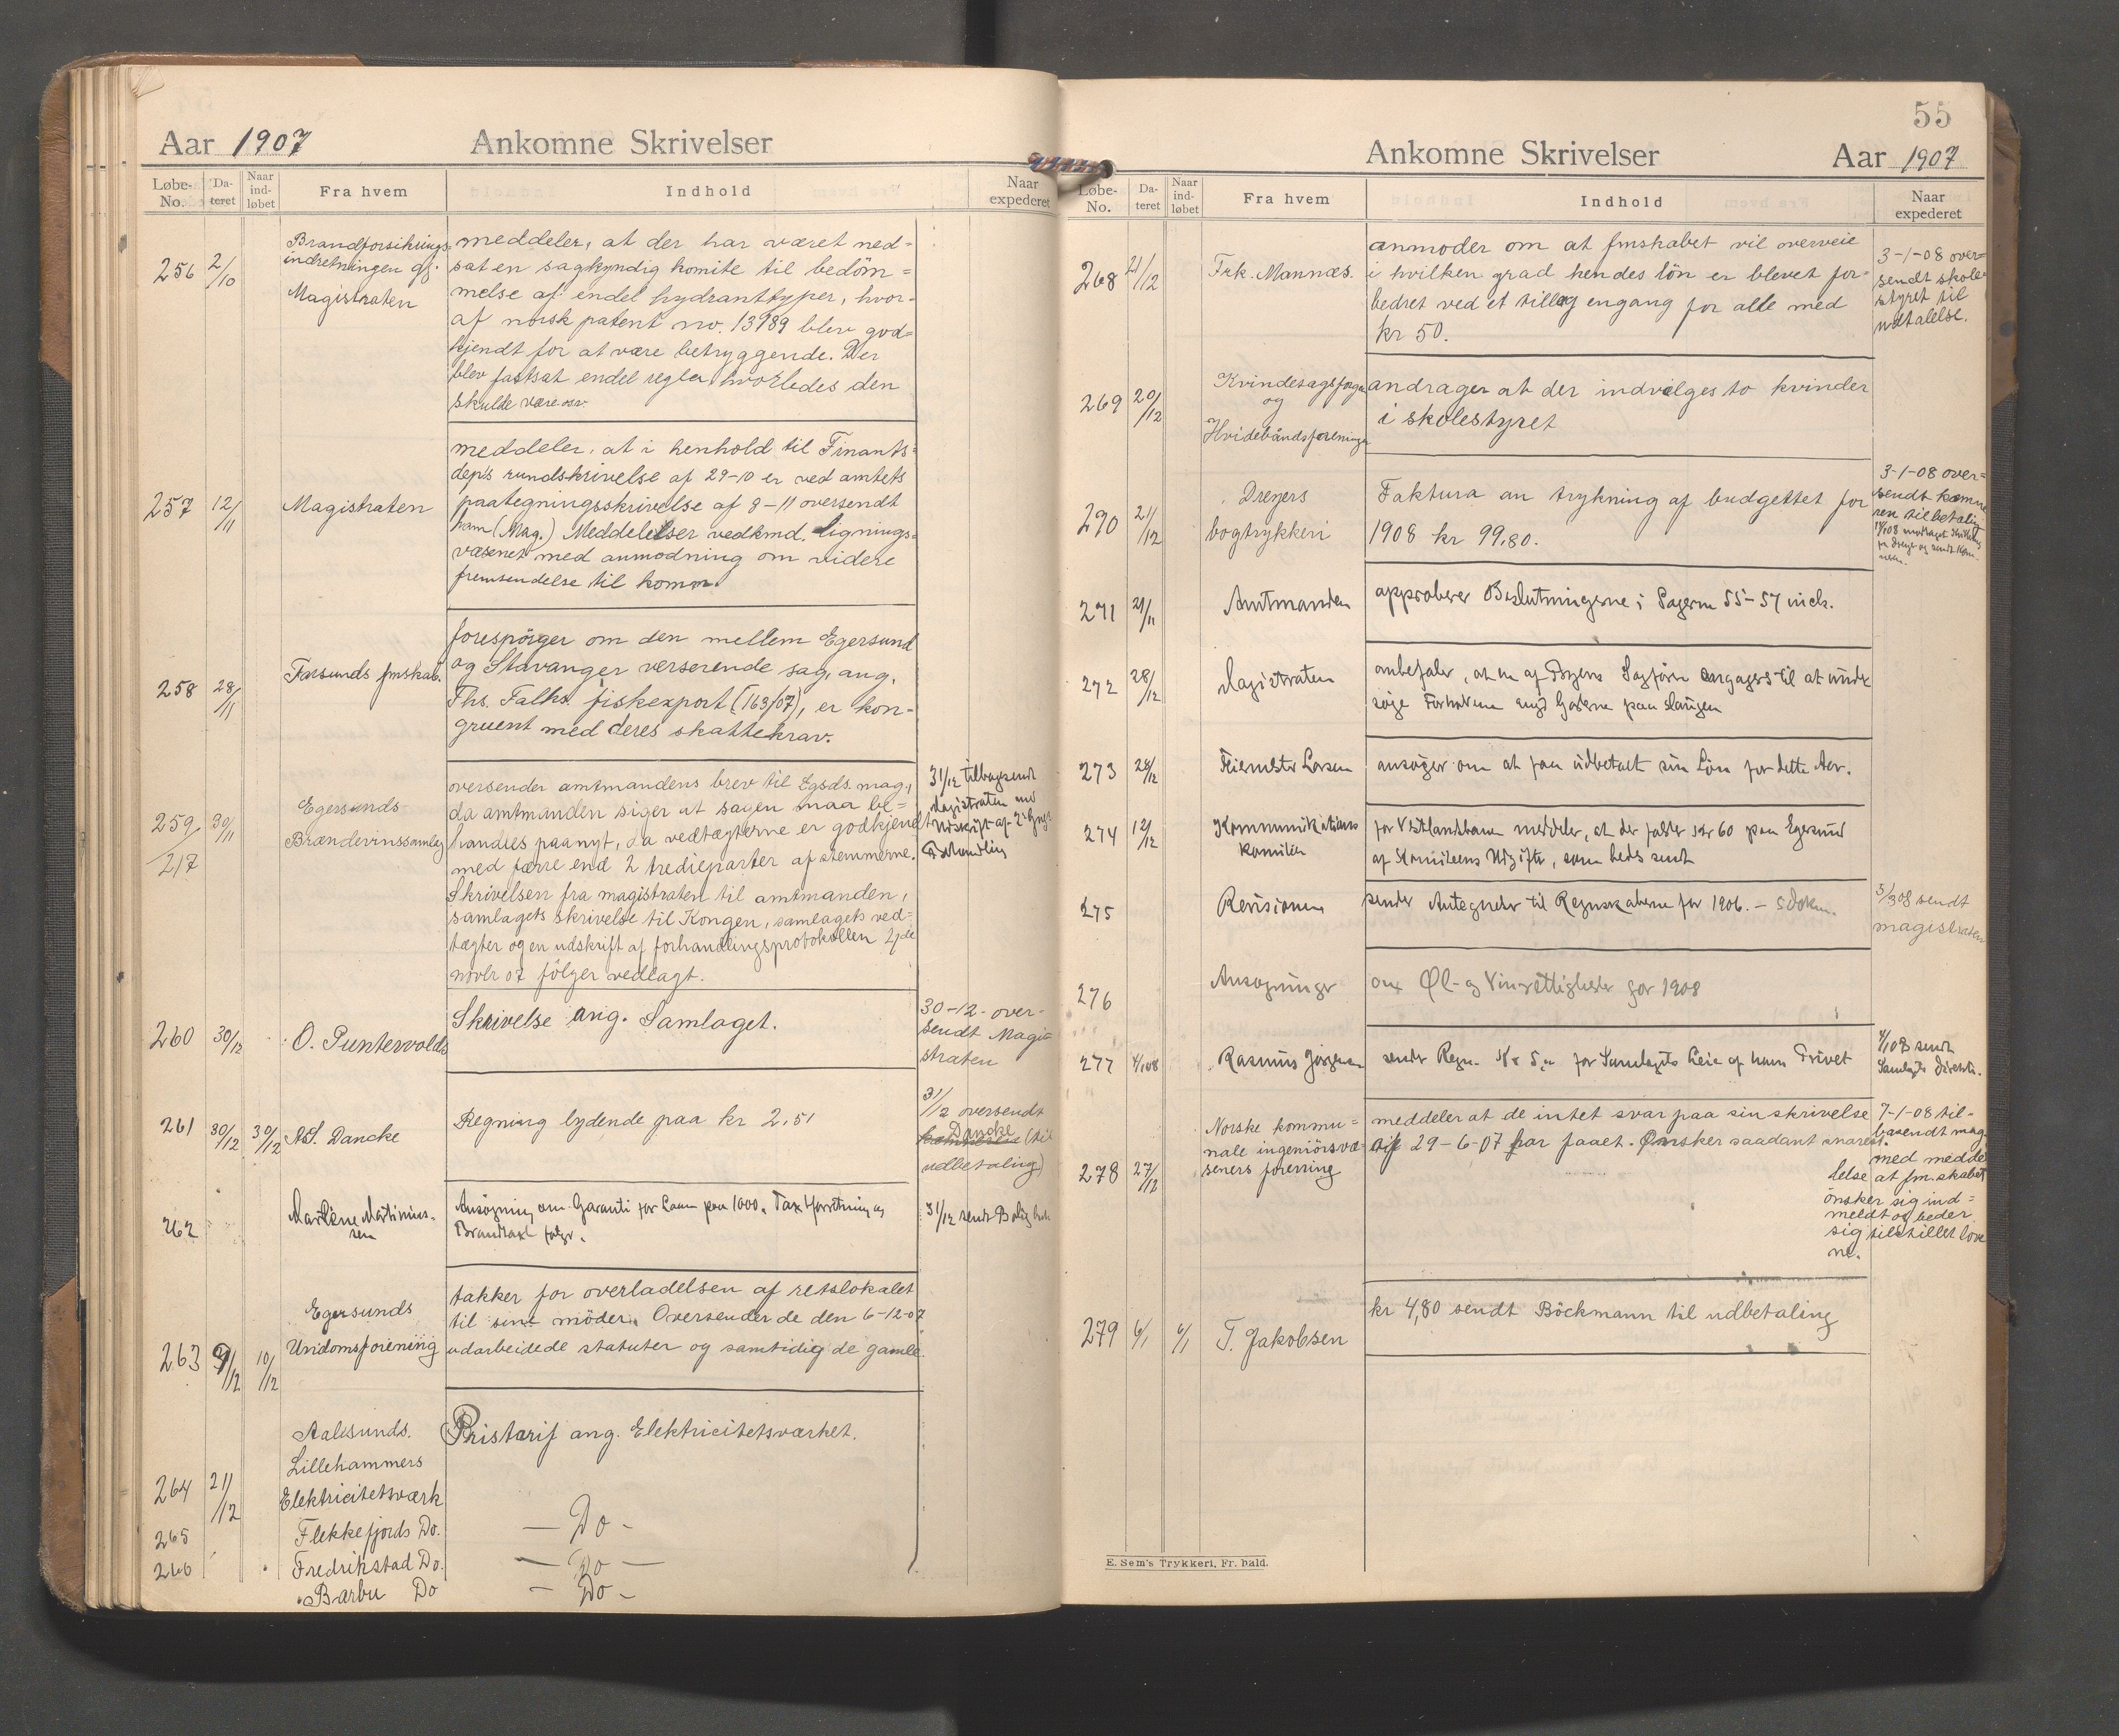 Aar 1907 Ankomne Skrivelser
Løbe-No. Da-teret Naar ind-løbet Fra hvem Indhold Naar expederet
256 2/10
Brandforsikrings=
indretningen gj.
Magistraten
meddeler, at der har været ned=
sat en sagkyndig komite til bedöm=
melse af endel hydranttyper, hvor-
af norsk patent no. 13989 blev god=
kjendt for at være betryggende. Der
blev fastsat endel regler hvorledes den
skulde være osv.
257 12/11 Magistraten
meddeler, at i henhold til Finants=
dep's rundskrivelse af 29-10 er ved amtets
paategningsskrivelse af 8-11 oversendt
ham (Mag.) Meddelelser vedkmd. Lignings=
væsenet med anmodning om videre
fremsendelse til komm.
258 28/11 Farsunds fmskab.
forespörger om den mellem Egersund
og Stavanger verserende sag, ang.
Ths. Falks fiskexport (163/07), er kon-
gruent med deres skattekrav.
259/217 30/11
Egersunds
Brændevinssamlag
oversender amtmandens brev til Egsds. mag.,
da amtmanden siger at sagen maa be=
handles paanyt, da vedtægterne er godkjendt
med færre end 2 tredieparter af stemmerne.
Skrivelsen fra magistraten til amtmanden,
samlagets skrivelse til Kongen, samlagets ved-
tægter og en udskrift af forhandlingsprotokollen 2/de
novbr 07 fölger vedlagt.
31/12 tilbagesendt
Magistraten med
Udskrift af
Behandling
260 30/12 O. Puntervolds
Skrivelse ang. Samlaget.
30-12- over-
sendt Magi=
straten
261 30/12 30/12 A.S. Dancke
Regning lydende paa kr 2,51
31/12 oversendt
Dancke (til
udbetaling)
262
Martine Martinius-
sen
Ansøgning om Garanti for Laan paa 1000. Taxtforretning og
Brandtaxt følger.
31/12 sendt Bolig
263 9/12 10/12
Egersunds
Ungdomsforening
takker for overladelsen af retslokalet
til sine möder. Oversender de den 6-12-07
udarbeidede statuter og samtidig de gamle.
264 21/12
Aalesunds.
Lillehammers
Elektricitetsværk
Pristarif ang. Elektricitetsværket.
265 Flekkefjords Do. — Do -
266 Fredrikstad Do. — Do —
Barbu Do - Do -
55
Ankomne Skrivelser Aar 1907
Løbe-No. Da-teret Naar ind-løbet Fra hvem Indhold Naar expederet
268 21/12 Frk. Mannæs.
anmoder om at fmskabet vil overveie
i hvilken grad hendes lön er blevet for-
bedret ved et tillæg engang for alle med
kr 50.
3-1-08 over=
sendt skole
styret til
udtalelse.
269 20/12
Kvindesagsforen
og
Hvidebåndsforeningen
andrager at der indvælges to kvinder
i skolestyret
290 21/12
Dreyers
bogtrykkeri
Faktura an trykning af budgettet for
1908 kr 99,80.
3-1-08 over=
sendt kæmne
ren til betaling
271 21/11 Amtmanden
approberer Beslutningerne i Sagerne 55-57 incl.
272 28/12 Magistraten
anbefaler, at en af Byens Sagførere engageres til at under
søge Forholdene ang. Godserne paa Slangen
273 28/12 Feiemester Larsen
ansøger om at faa udbetalt sin Løn for dette Aar.
274 12/12
Kommunikations
komitéen
for Vestlandsbanen meddeler, at der falder kr 60 paa Egersund
af Komiteens Udgifter, som bedes sendt
275 Revisionen
sender Antegnelser til Regnskaberne for 1906. - 5 dokm.
3/1 08 sendt
magistraten
276 Ansøgninger
om Øl- og Vinrettigheder for 1908
277 4/1 08 Rasmus Jørgensen
sender Regn. Kr 5,- for Samlagets Leie af hans Privet
4/1 08 sendt
Samlagets Direktion.
278 27/12
Norske kommu=
nale ingeniörsvæ-
seners forening
meddeler at de intet svar paa sin skrivelse
af 29-6-07 har faaet. Önsker saadant snarest.
7-1-08 til-
basendt mag.
med medde
lelse at fm.skabet
önsker sig ind=
meldt og beder
sig tilstillet love
ne.
279 6/1 6/1 T. Jakobsen
kr 4,80 sendt Böckmann til udbetaling
E. Sem's Trykkeri, Fr. hald.